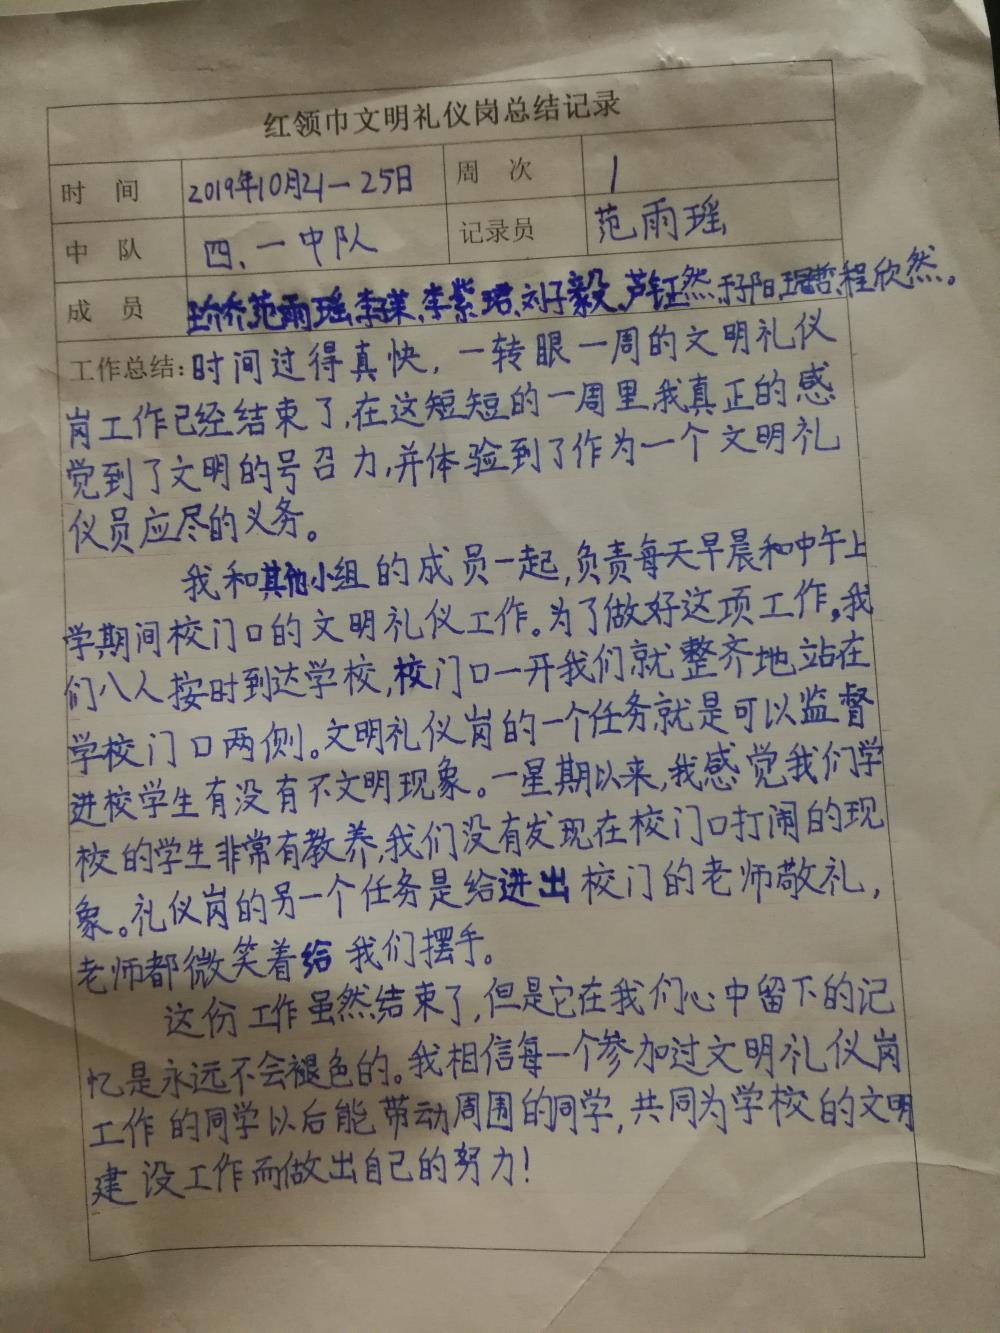 红领巾文明礼仪岗总结记录
时 间 2019年10月21－25日 周 次 1
中 队 四、一中队 记录员 范雨瑶
成 员 范雨瑶、李、李紫珺、刘子毅、芦钰然、于子阳、程欣然。
工作总结：时间过得真快，一转眼一周的文明礼仪
岗工作已经结束了，在这短短的一周里，我真正的感
觉到了文明的号召力，并体验到了作为一个文明礼
仪员应尽的义务。
我和其他小组的成员一起，负责每天早晨和中午上
学期间校门口的文明礼仪工作。为了做好这项工作。我
们八人按时到达学校，校门口一开我们就整齐地站在
学校门口两侧。文明礼仪岗的一个任务就是可以监督
进校学生有没有不文明现象。一星期以来，我感觉我们学
校的学生非常有教养，我们没有发现在校门口打闹的现
象。礼仪岗的另一个任务是给进出校门的老师敬礼，
老师都微笑着给我们摆手。
这份工作虽然结束了，但是它在我们心中留下的记
忆是永远不会褪色的。我相信每一个参加过文明礼仪岗
工作的同学以后能带动周围的同学，共同为学校的文明
建设工作而做出自己的努力！